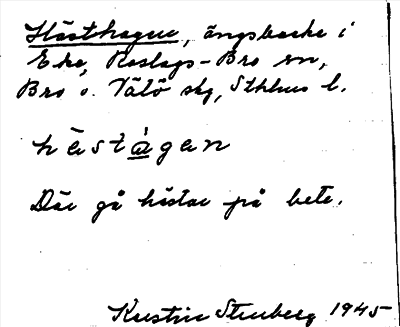 Hästhagen, ängsbacke i
Eke, Roslags-Bro sn,
Bro o. Vätö skg, Sthlms l.
hästagan
Där gå hästar på bete.
Kerstin Stenberg 1945